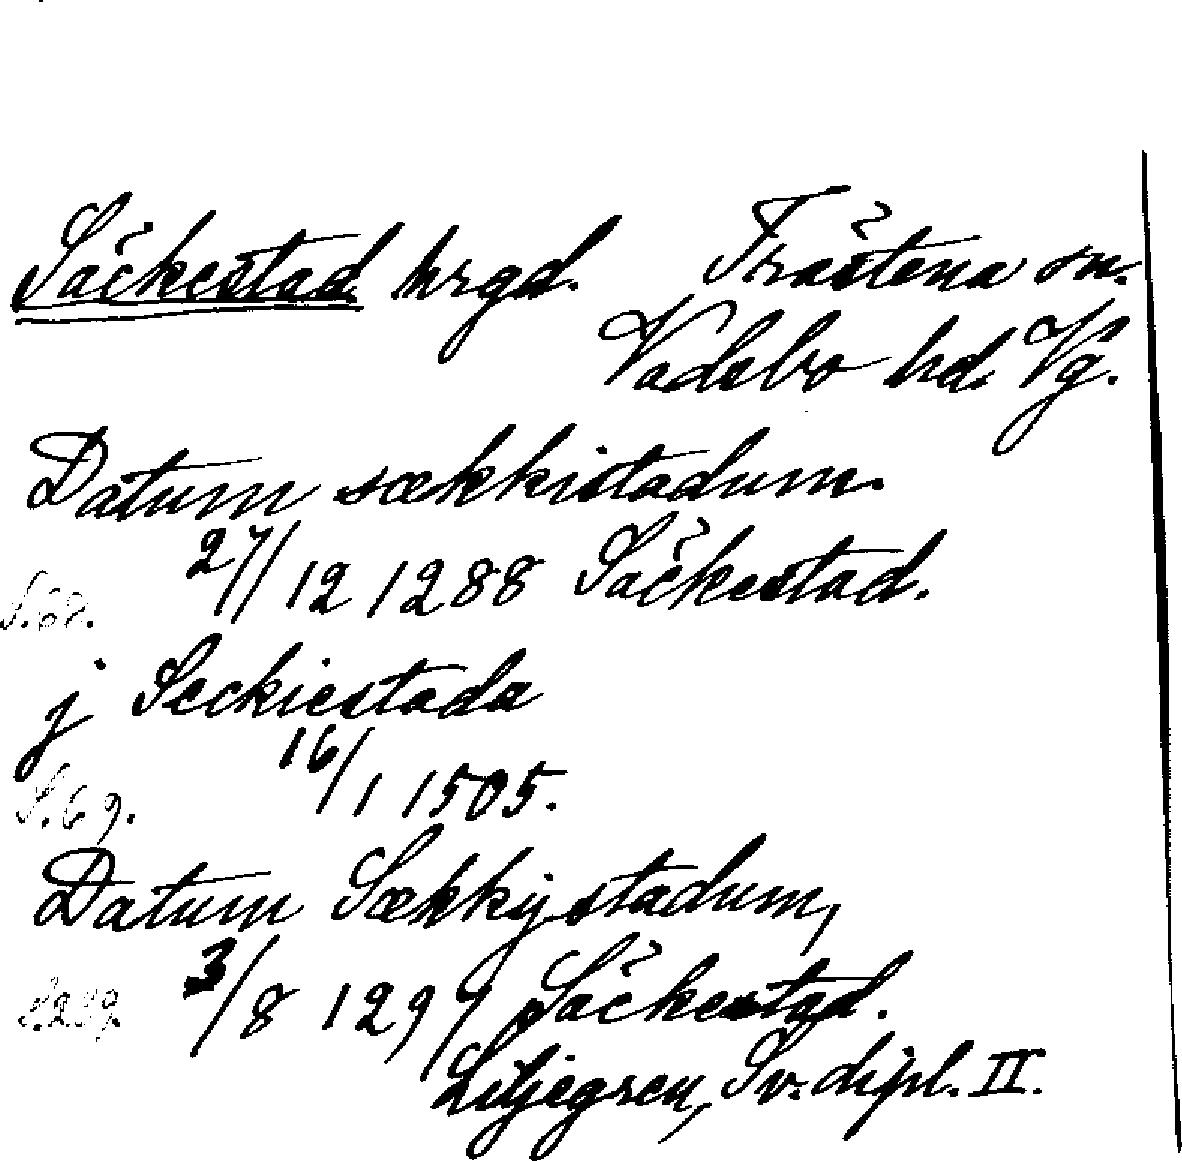 Säckestad hrgd. Trästena sn.
Vadsbo hd. Vg.
Datum sækkistadum.
27/12 1288 Säckestad.
S. 68.
j Seckiestada
16/1 1505.
S. 69.
Datum Sækkystadum,
3/8 1297 Säckestad.
Liljegren, Sv. dipl. II.